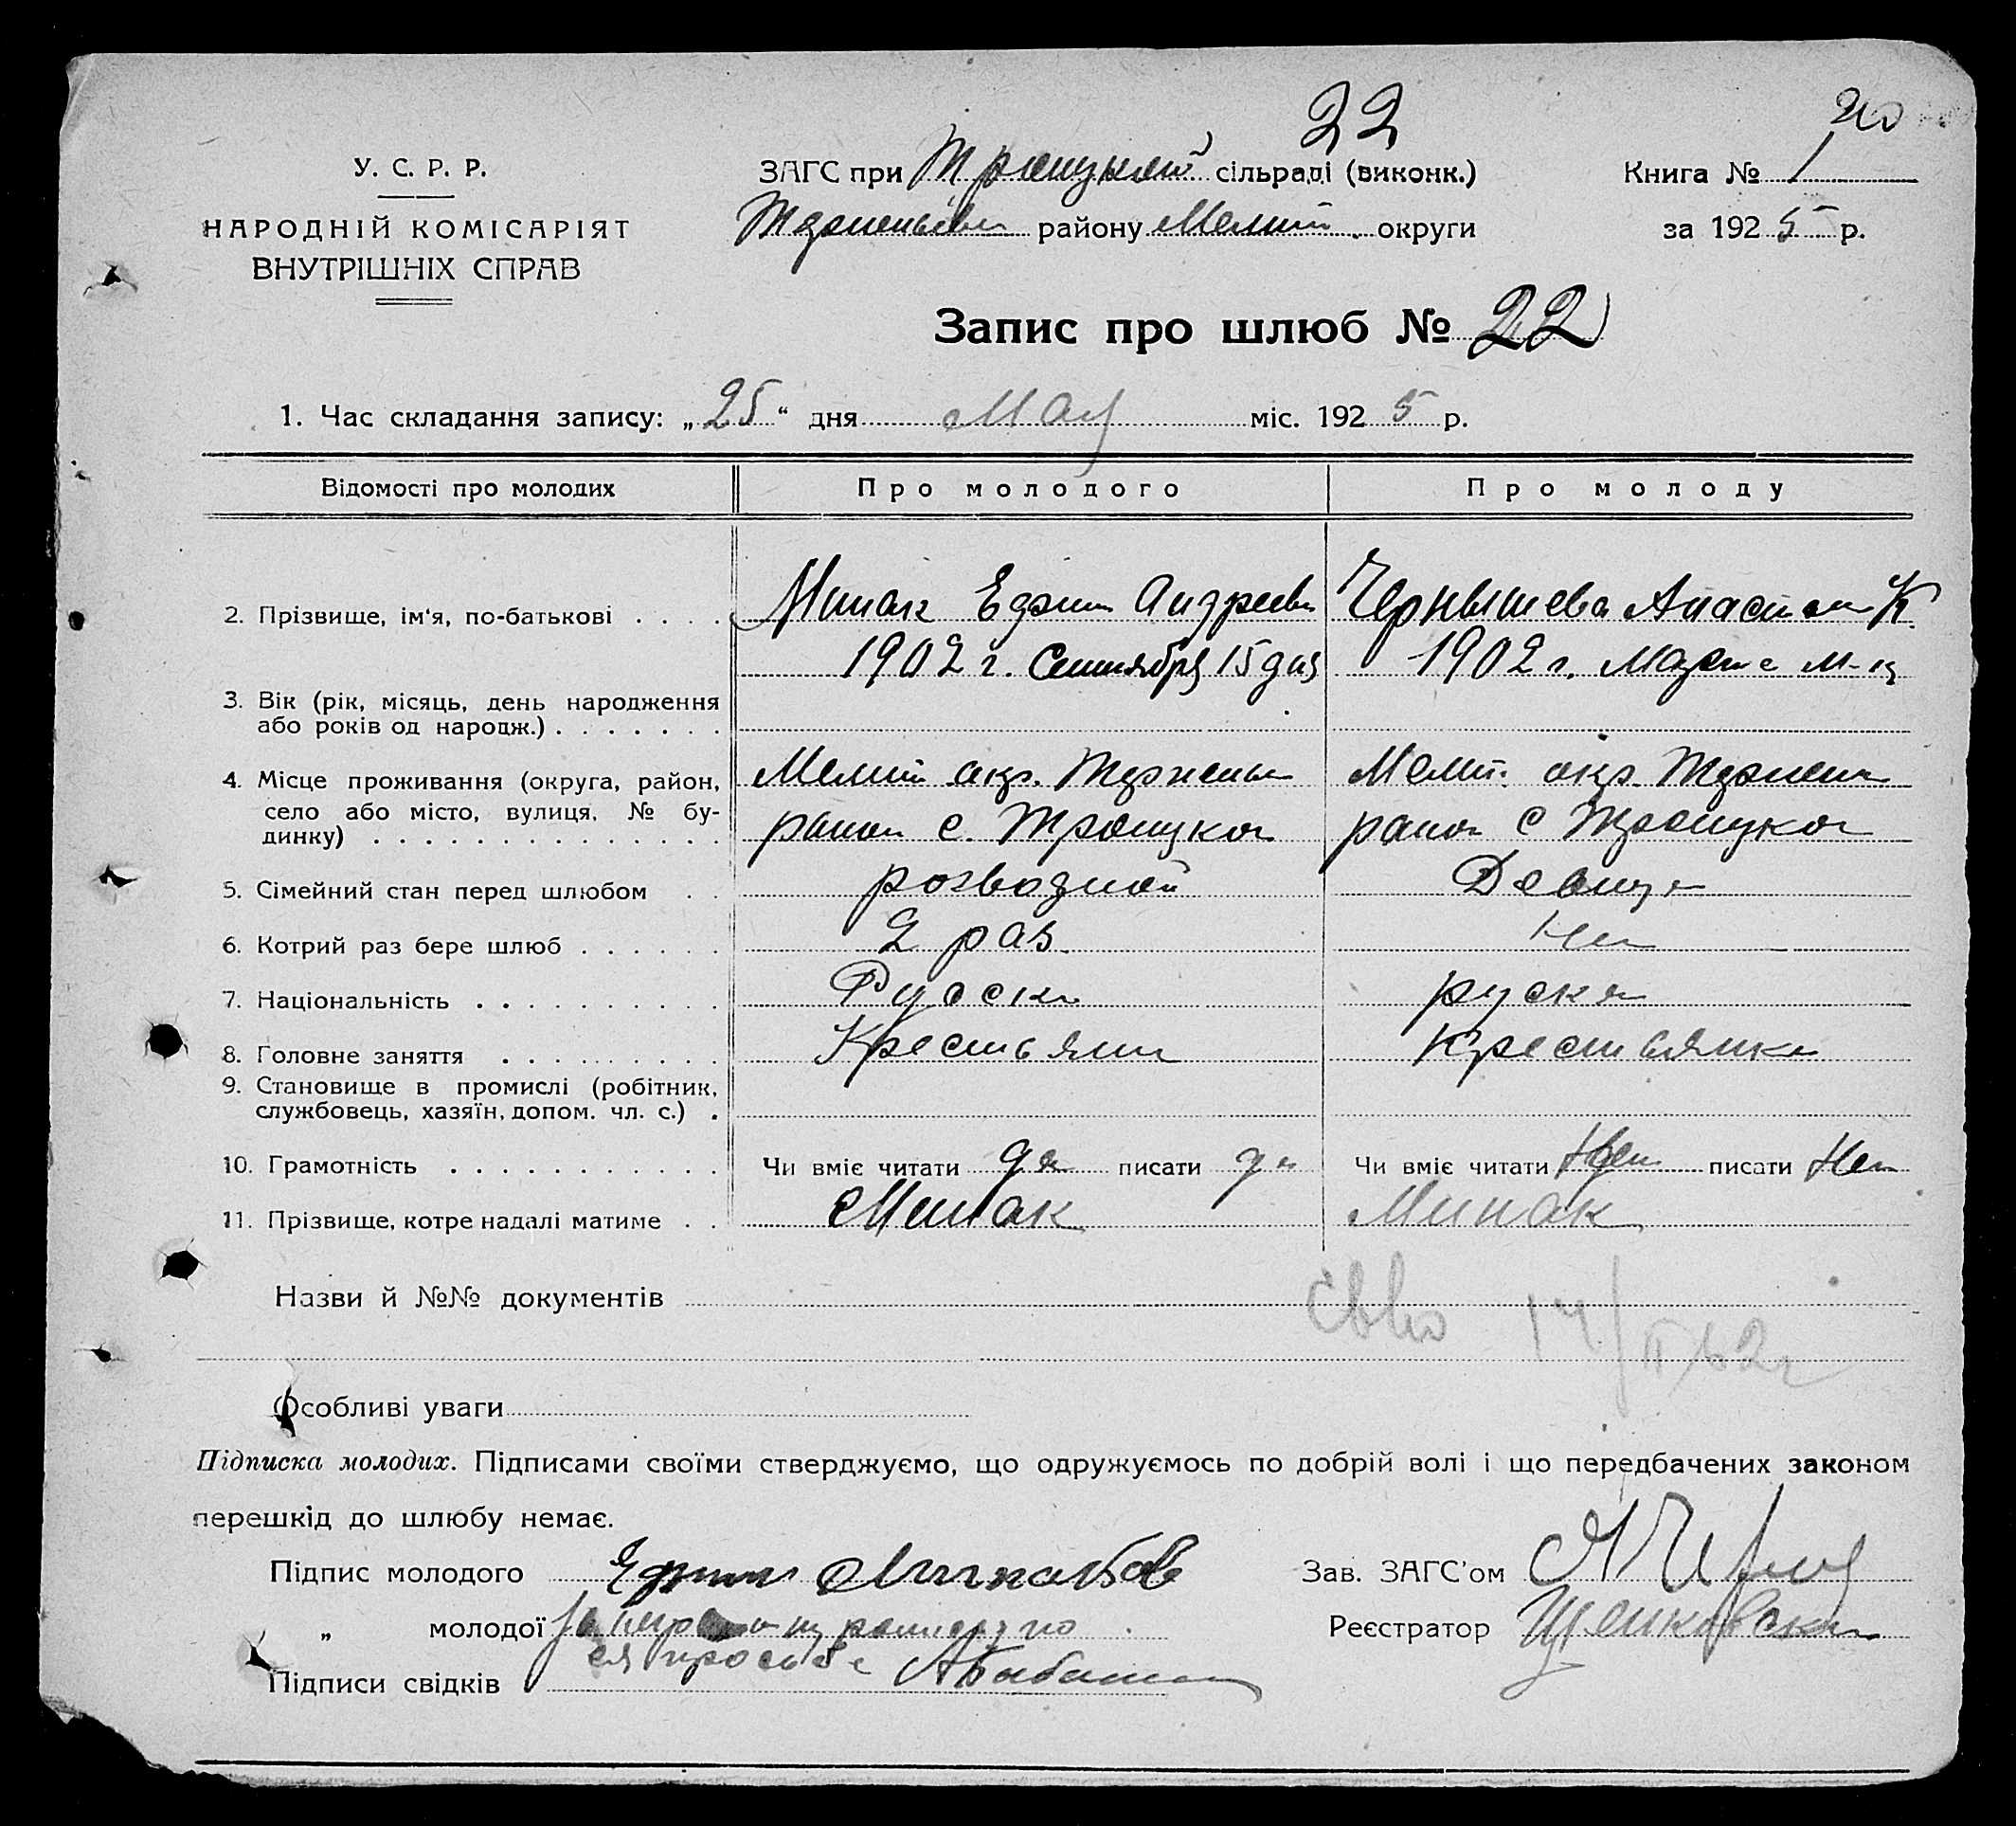 22
20
У. С. Р. Р.
НАРОДНІЙ КОМІСАРІЯТ
ВНУТРІШНІХ СПРАВ
ЗАГС при Троицкой сільраді (виконк.)
району Мелит. округи
Книга № 1
за 1925 р.
Запис про шлюб № 22
1. Час складання запису: „25“ дня Мая міс. 1925 р.
Відомості про молодих Про молодого Про молоду
2. Прізвище, ім'я, по-батькові . . . . Минак Ефим Андреев Чернышева Анастас К.
1902 г. Сентября 15 дня 1902 г. Марта м-ца
3. Вік (рік, місяць, день народження
або років од народж.) . . . . . . .
4. Місце проживання (округа, район, Мелит окр. Мелит. окр.
село або місто, вулиця, № бу-
динку) . . . . . . . . . . . . . . район с. Троицкое район с Троицкое
5. Сімейний стан перед шлюбом . . розводной Девица
6. Котрий раз бере шлюб . . . . . . 2 раз Нет
7. Національність . . . . . . . . . . Руски руская
8. Головне заняття . . . . . . . . . Крестьянин Крестьянка
9. Становище в промислі (робітник,
службовець, хазяїн, допом. чл. с.) .
10. Грамотність . . . . . . . . . . . Чи вміє читати да писати да Чи вміє читати Нет писати Нет
11. Прізвище, котре надалі матиме . . Минак Минак
Назви й №№ документів
14/II 62г
Особливі уваги
Підписка молодих. Підписами своїми стверджуємо, що одружуємось по добрій волі і що передбачених законом
перешкід до шлюбу немає.
Підпис молодого Ефим
Зав. ЗАГС'ом
„ молодої За неграмотну по
Реєстратор
ея просьбе
Підписи свідків